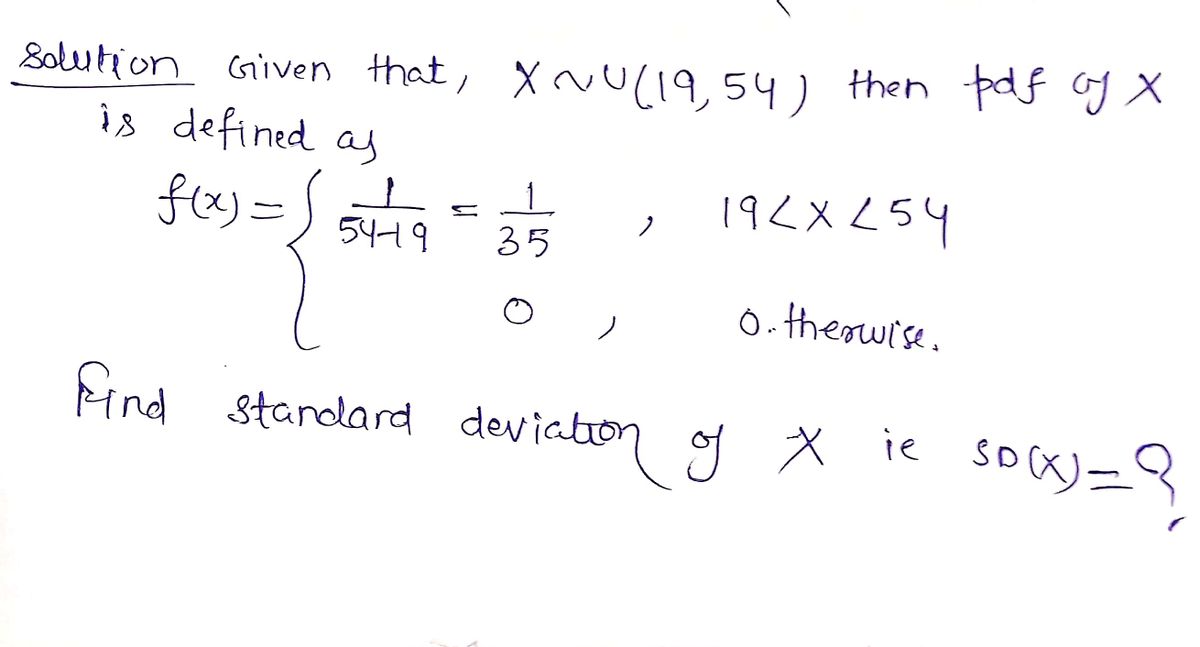 Solution Given that, X ~ U(19, 54) then pdf of X
is defined as
f(x) = { 1/(54-19) = 1/35 , 19 < X < 54
0 , O.therwise.
Find standard deviation of X ie SD(X) = ?